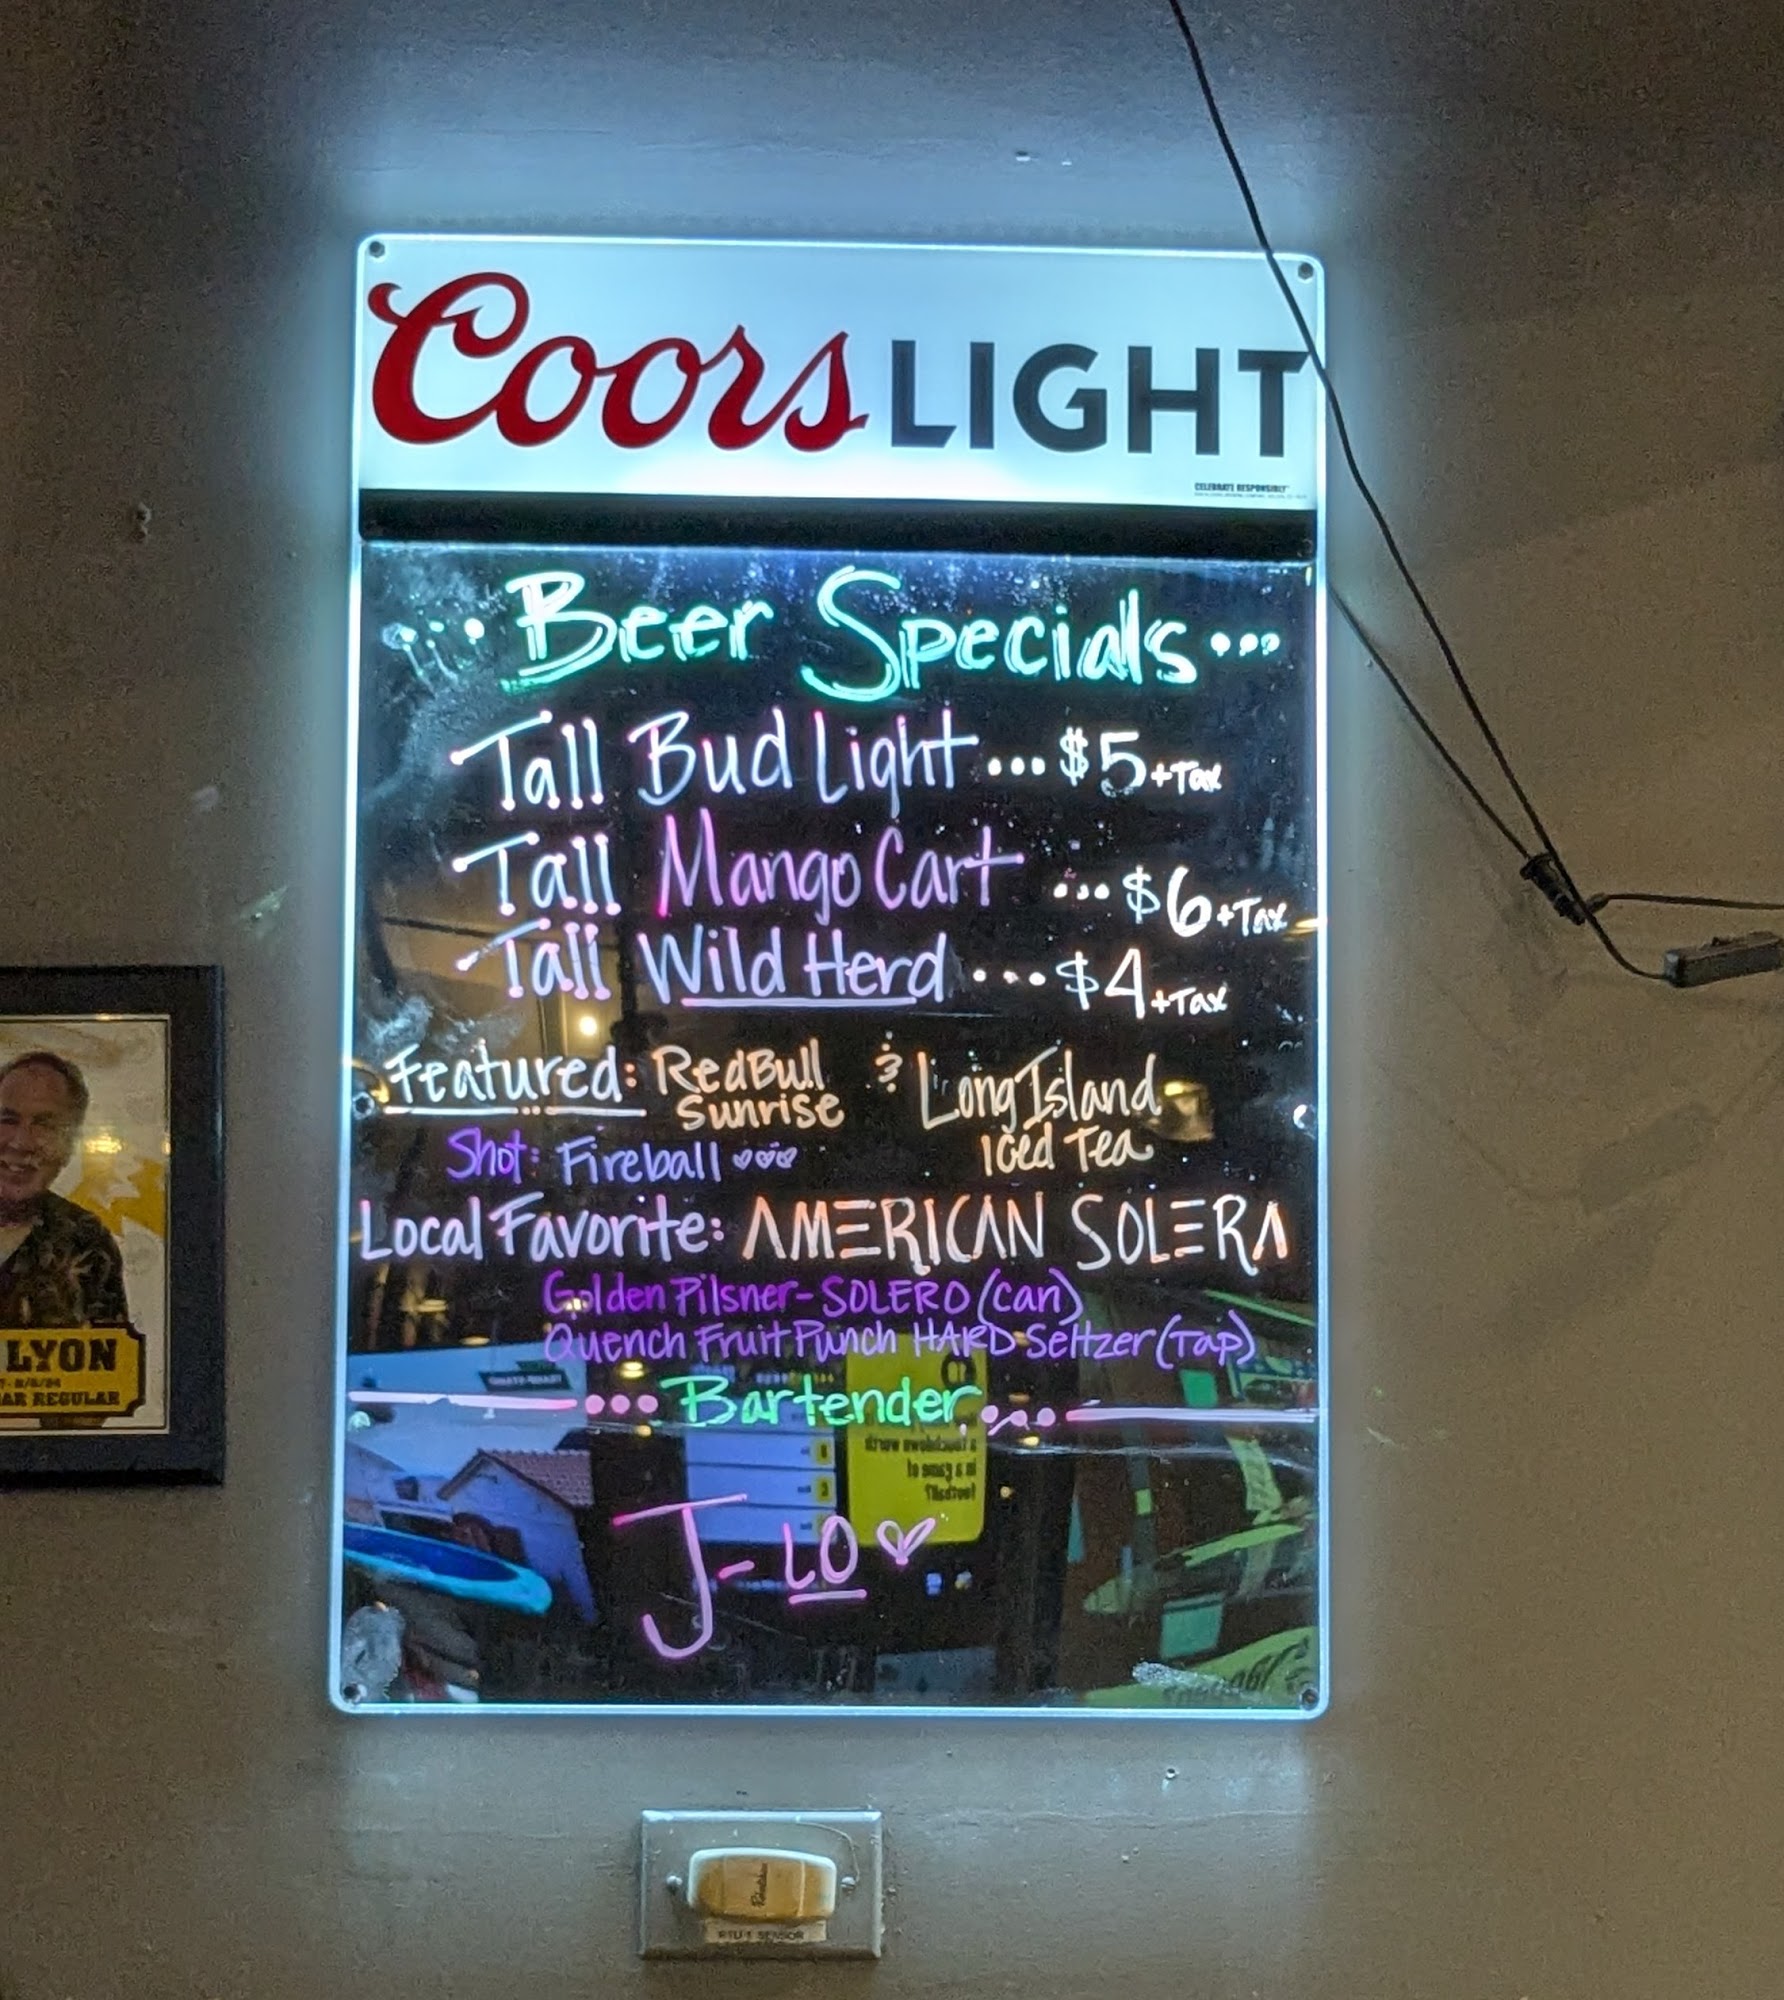 Coors LIGHT
CELEBRATE RESPONSIBLY
... Beer Specials ...
Tall Bud Light ... $5 +Tax
Tall Mango Cart ... $6 +Tax
Tall Wild Herd ... $4 +Tax
Featured: RedBull Sunrise & Long Island Iced Tea
Shot: Fireball ♡♡♡
Local Favorite: AMERICAN SOLERA
Golden Pilsner - SOLERO (Can)
Quench Fruit Punch HARD Seltzer (Tap)
... Bartender ...
J-LO ♡
LYON
AR REGULAR
RTU-1 SENSOR